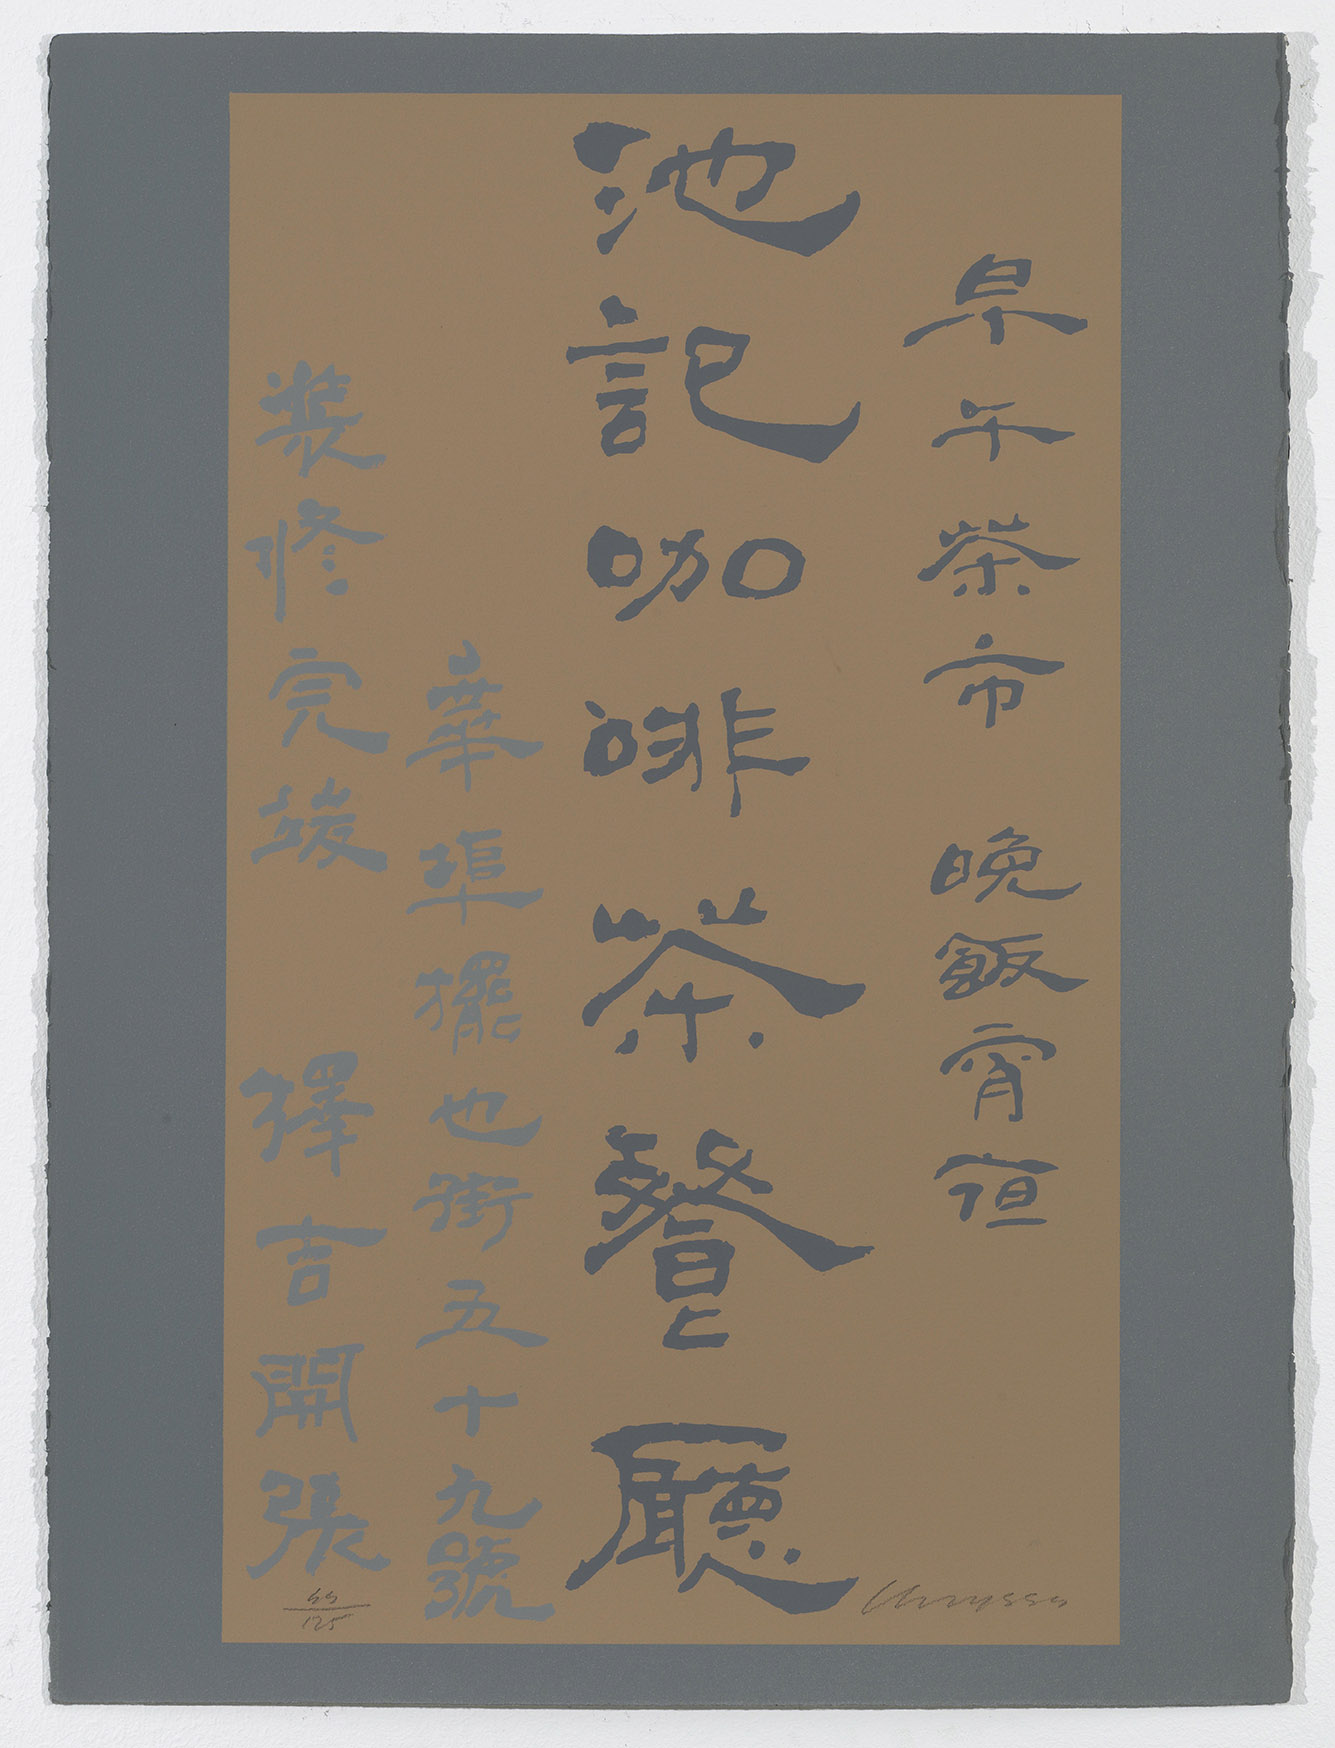 早午茶市 晚飯宵夜
池記咖啡茶餐廳
華埠擺也街五十九號
裝修完竣 擇吉開張
69/125
Chryssa